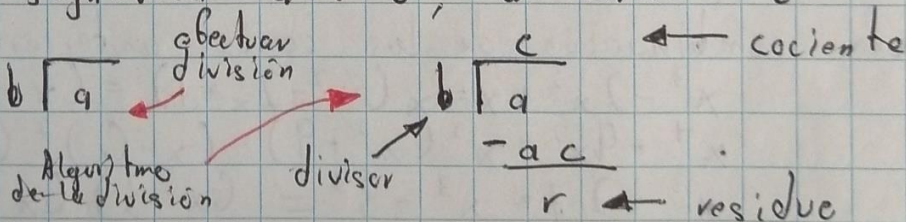 efectuar
división
b a
Algoritmo
de la división
c
b a
- a c
r
divisor
cociente
residuo